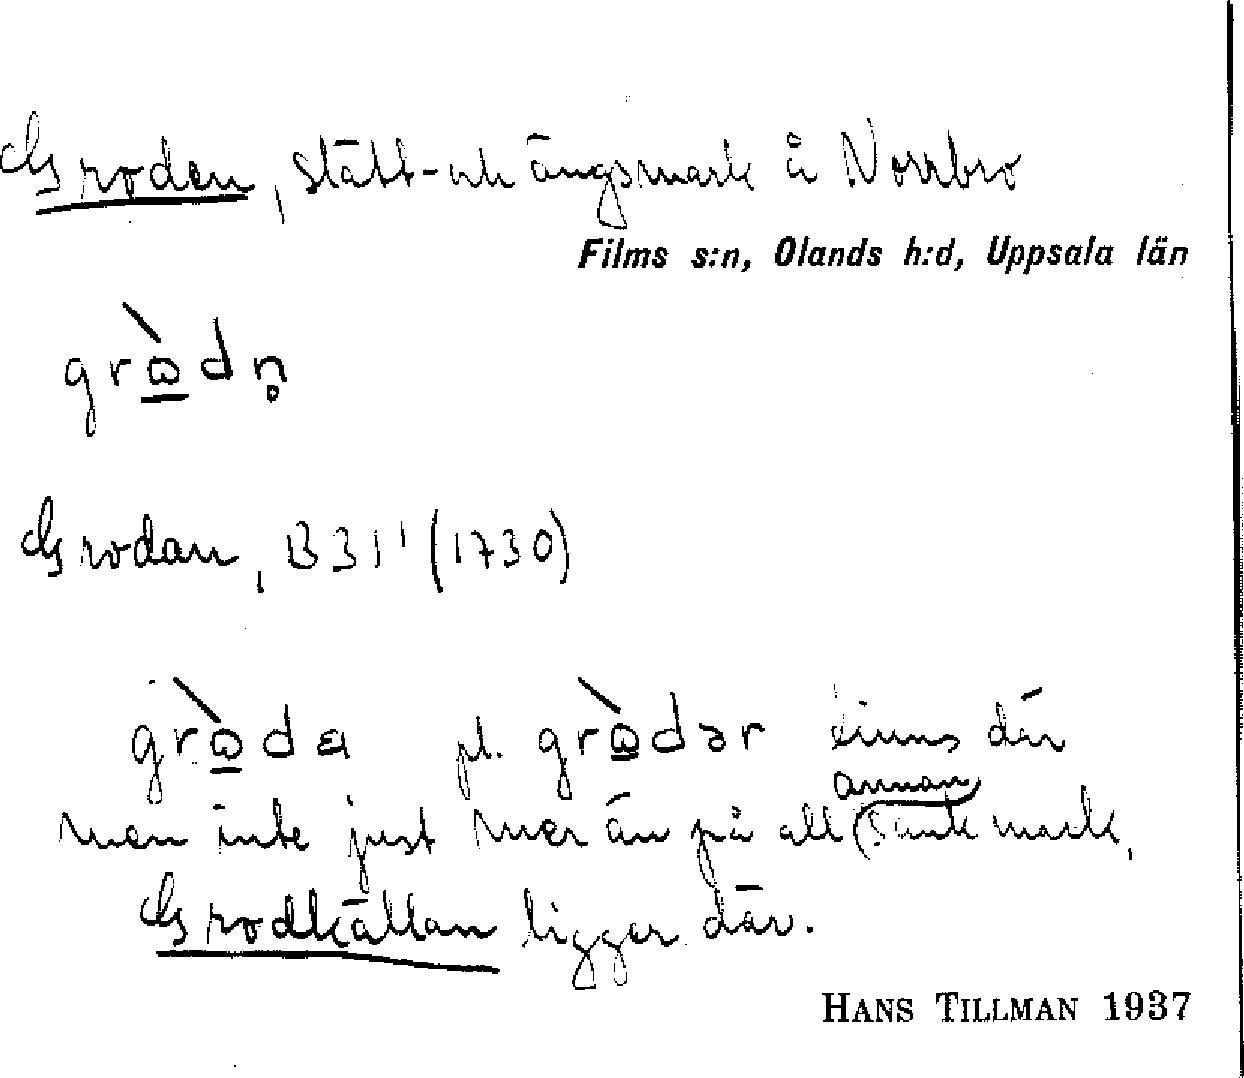 Groden, slätt- och ängsmark å Norrbro
Films s:n, Olands h:d, Uppsala län
grὼdn̥
Grodan, B31¹ (1730)
grὼda pl. grὼdər finns där
men inte just mer än på all annan sank mark,
Grodkällan ligger där.
HANS TILLMAN 1937